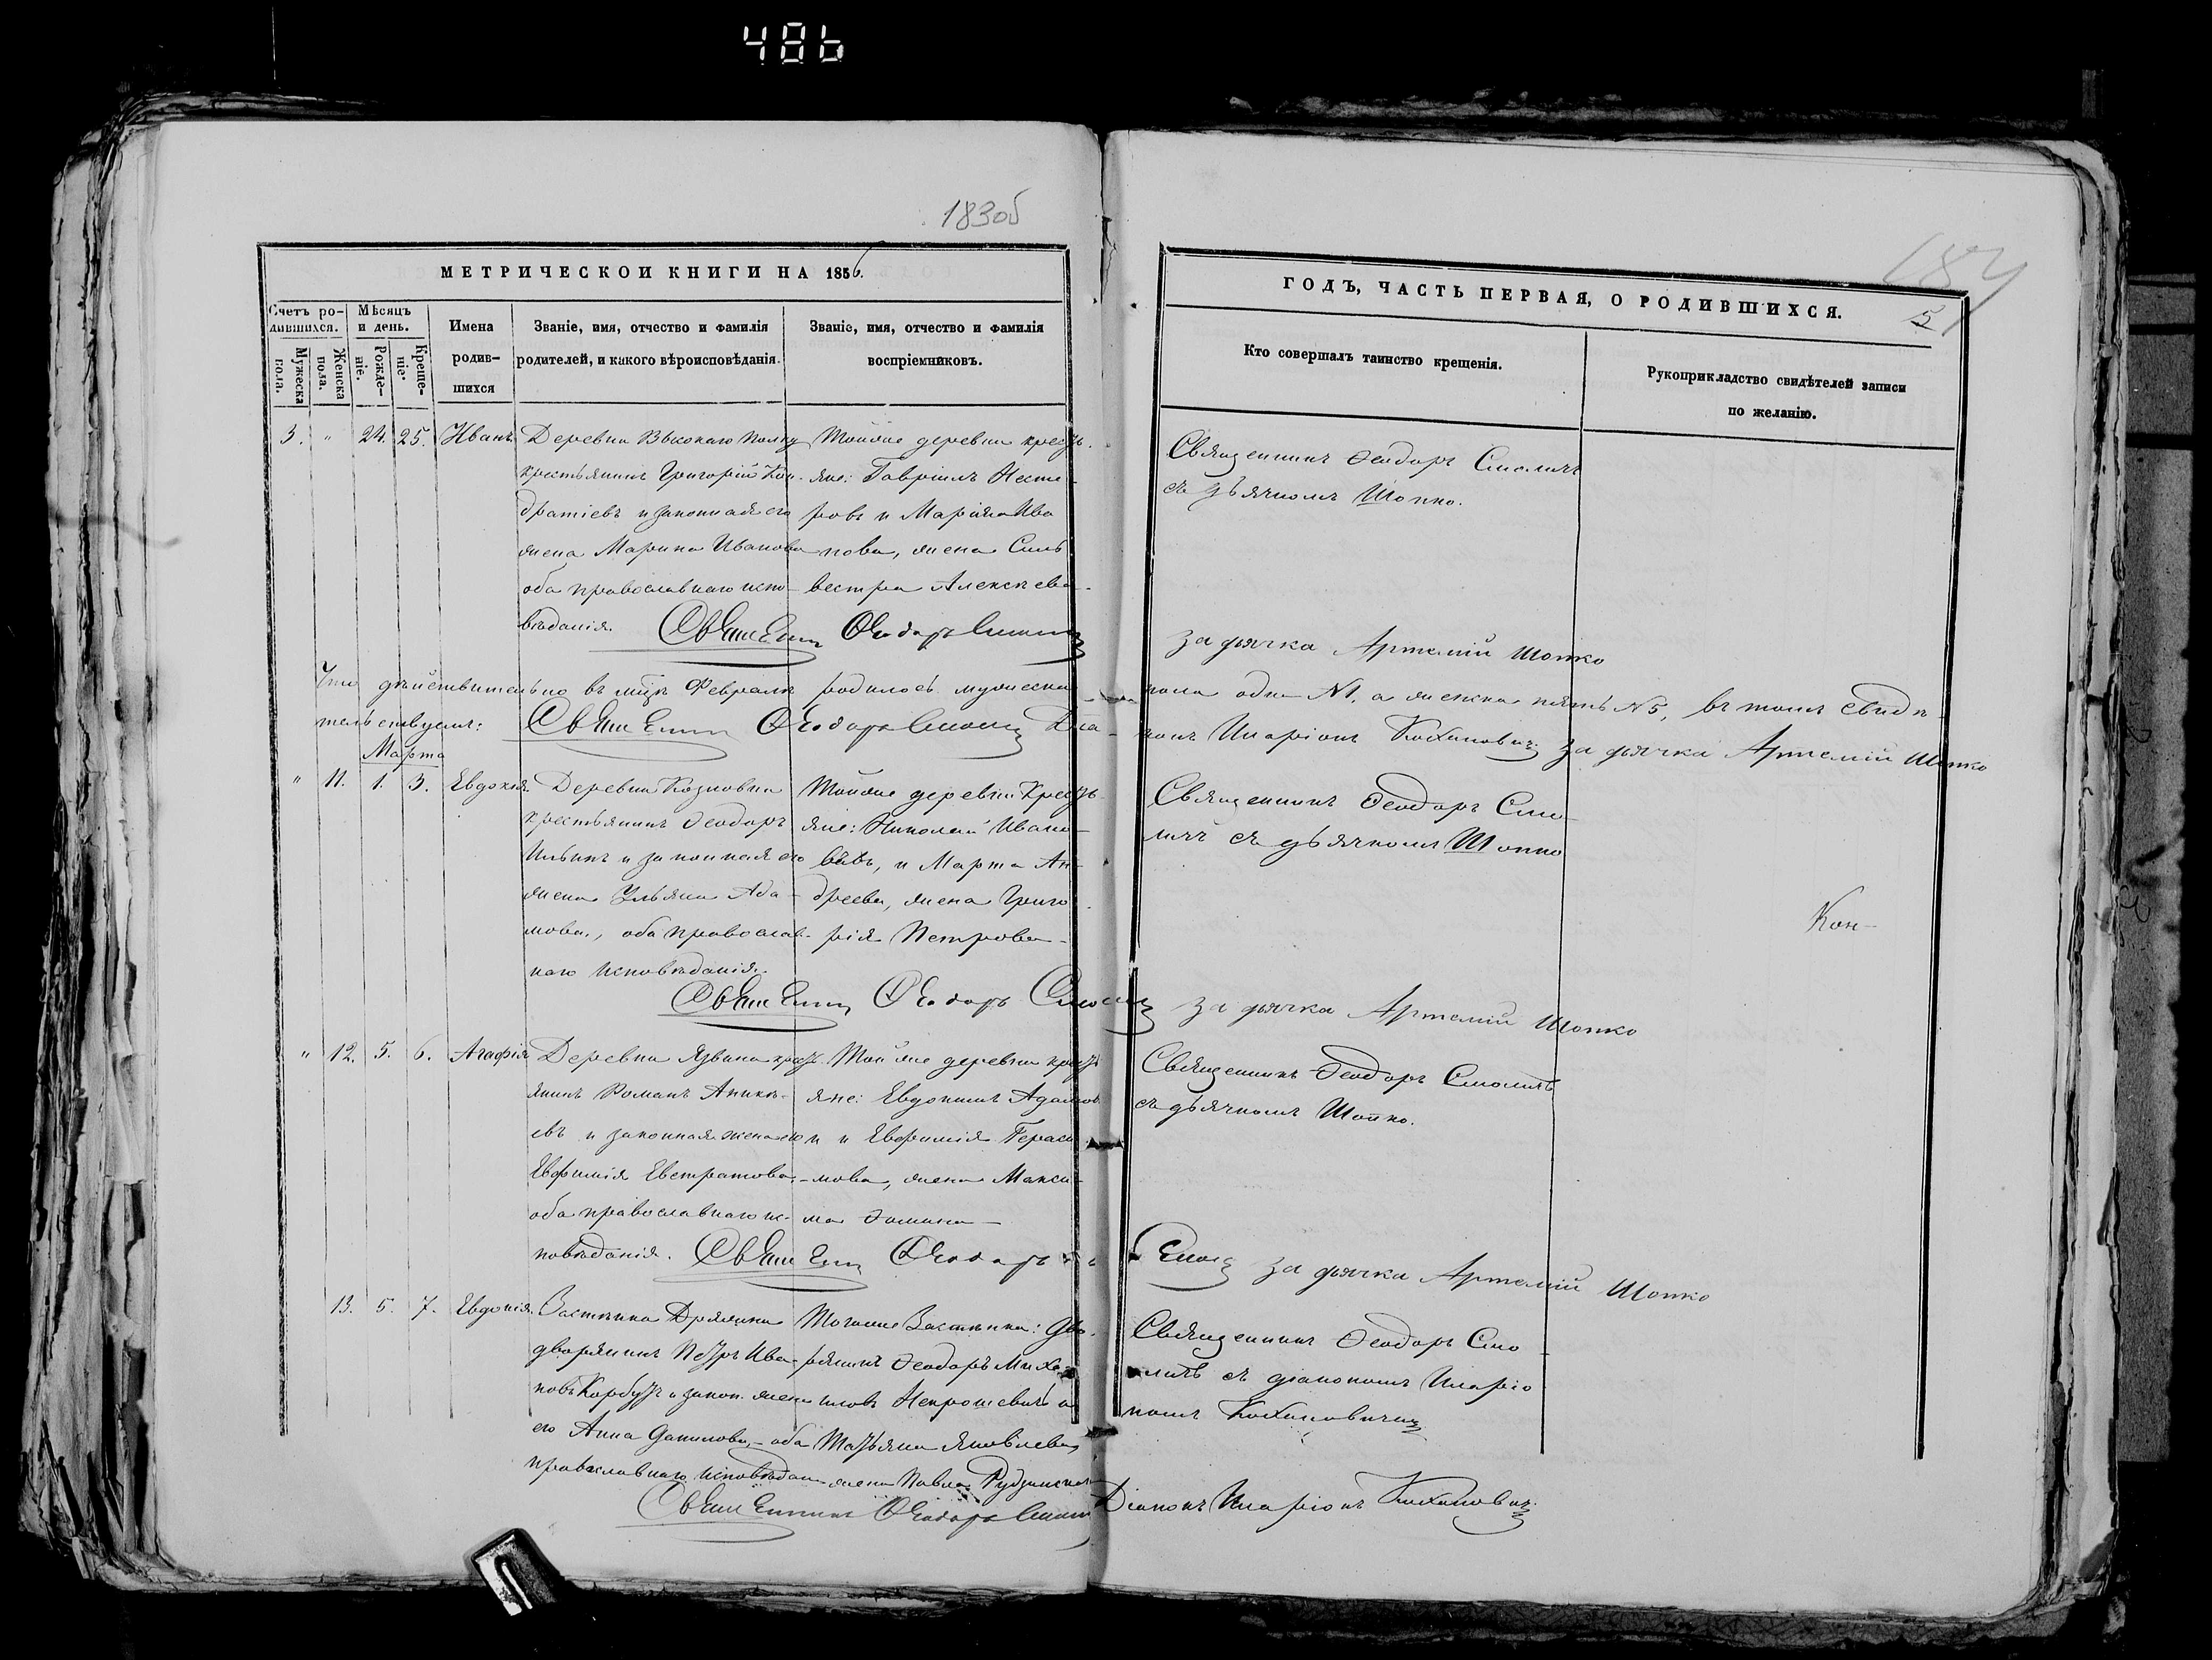 486
183об
184
МЕТРИЧЕСКОИ КНИГИ НА 1856.
ГОДЪ, ЧАСТЬ ПЕРВАЯ, О РОДИВШИХСЯ.
5
Счетъ родившихся.
Мужеска пола.
Женска пола.
Мѣсяцъ и день.
Рожденіе.
Крещеніе.
Имена родив-
шихся
Званіе, имя, отчество и фамилія
родителей, и какого вѣроисповѣданія.
Званіе, имя, отчество и фамилія
воспріемниковъ.
Кто совершалъ таинство крещенія.
Рукоприкладство свидѣтелей записи
по желанію.
3. " 24. 25. Иванъ
Деревни Высокаго Полку
крестьянинъ Григорій Кон-
дратіевъ и законная его
жена Марина Иванова
оба православнаго испо-
вѣданія.
Тойже деревни крест.
яне: Гавріилъ Несте-
ровъ и Марія Ива
нова, жена Силь
вестра Алексѣева.
Священникъ Ѳеодоръ Смоличъ
съ дьячкомъ Шопко.
Священникъ Ѳеодоръ Смоличъ
за дьячка Артемій Шопко
Что дѣйствительно въ м-цѣ Февралѣ родилось мужеска пола одинъ №1, а женска пять №5, въ томъ свидѣ-
тельствуемъ: Священникъ Ѳеодоръ Смоличъ Діа-конъ Иларіонъ Коханович за дьячка Артемій Шопко
Марта
" 11. 1. 3. Евдокія.
Деревни
крестьянинъ Ѳеодоръ
Ильинъ и законная его
жена Ульяна Ада-
мова, оба православ-
наго исповѣданія.
Тойже деревни Крест-
яне: Николай Ивано-
вѣвъ, и Марта Ан-
дреева, жена Григо
рія Петрова-
Священникъ Ѳеодоръ Смо-
личъ съ дьячкомъ Шопко
Кон-
Священникъ Ѳеодоръ Смоличъ за дьячка Артемій Шопко
" 12. 5. 6. Агафія
Деревни Язвина крест.
янинъ Романъ Аникѣ-
евъ и законная жена его
Евфимія Евстратова
оба православнаго ис-
повѣданія.
Тойже деревни крест
яне: Евдокимъ Адамов
и Евфимія Гераси
мова, жена Макси-
ма Ѳомина-
Священникъ Ѳеодоръ Смоличъ
съ дьячкомъ Шопко.
Священникъ Ѳеодоръ Смоличъ за дьячка Артемій Шопко
13. 5. 7. Евдокія.
Застѣнка
дворянинъ Петръ Ива-
новъ Корбутъ и закон. жена
его Анна Данилова, оба
православнаго исповѣдан
Тогоже Застѣнка: дво-
рянинъ Ѳеодоръ Миха-
иловъ и
Татьяна Яковлева,
жена Павла
Священникъ Ѳеодоръ Смо-
личъ съ діакономъ Иларіо
номъ Кохановичемъ
Священникъ Ѳеодоръ Смоличъ Діаконъ Иларіонъ Коханович.